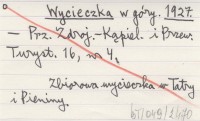 Wycieczka w góry. 1927.
— Prz. Zdroj.-Kąpiel. i Przew.
Turyst. 16, nr 4,
Zbiorowa wycieczka w Tatry
i Pieniny.